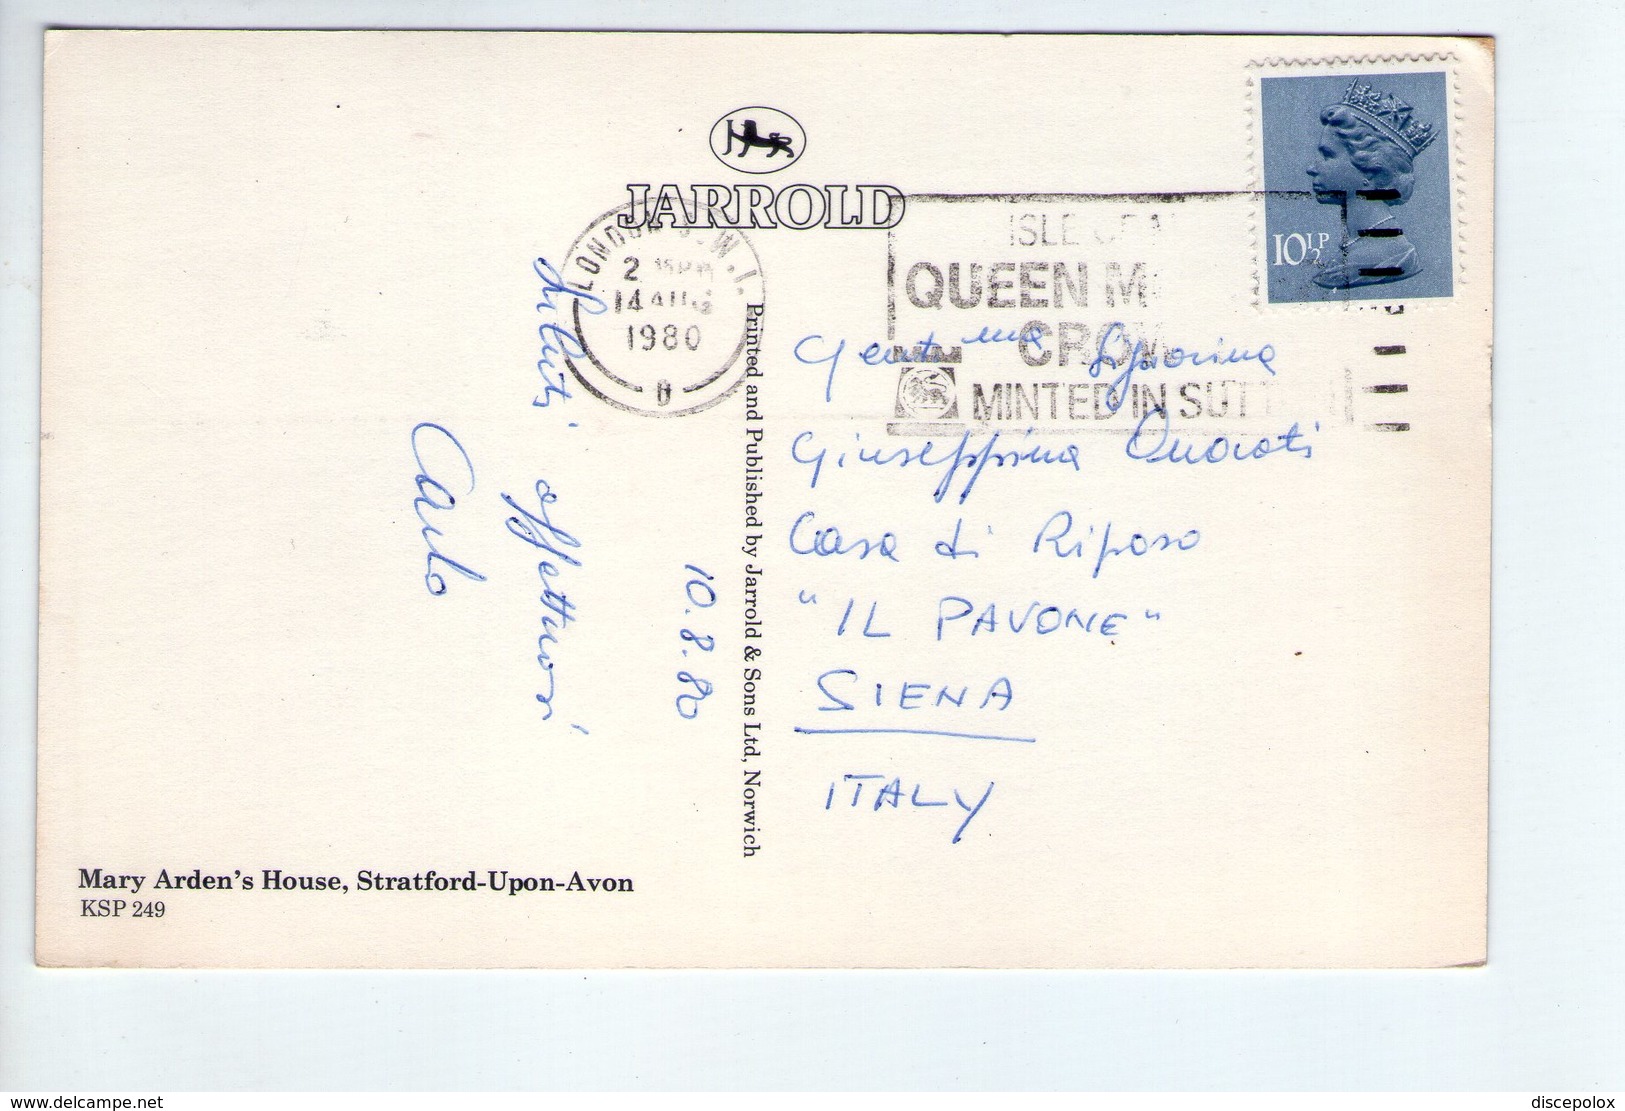 JARROLD
LONDON S.W.1.
2
14 AUG
1980
D
ISLE OF
QUEEN M
CRO
MINTED IN SUTT
10½P
Saluti affettuosi
Carlo
10.8.80
Printed and Published by Jarrold & Sons Ltd, Norwich
Gent.ma Signorina
Giuseppina
Casa di Riposo
"IL PAVONE"
SIENA
ITALY
Mary Arden's House, Stratford-Upon-Avon
KSP 249
www.delcampe.net
discepolox